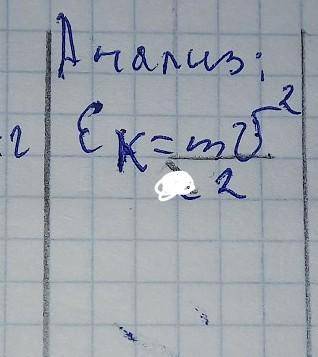 Анализ:
Eк = mv²
2